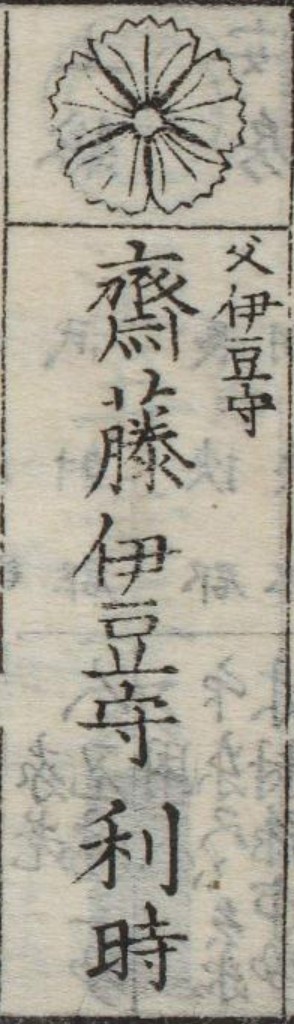 父伊豆守
齋藤伊豆守利時